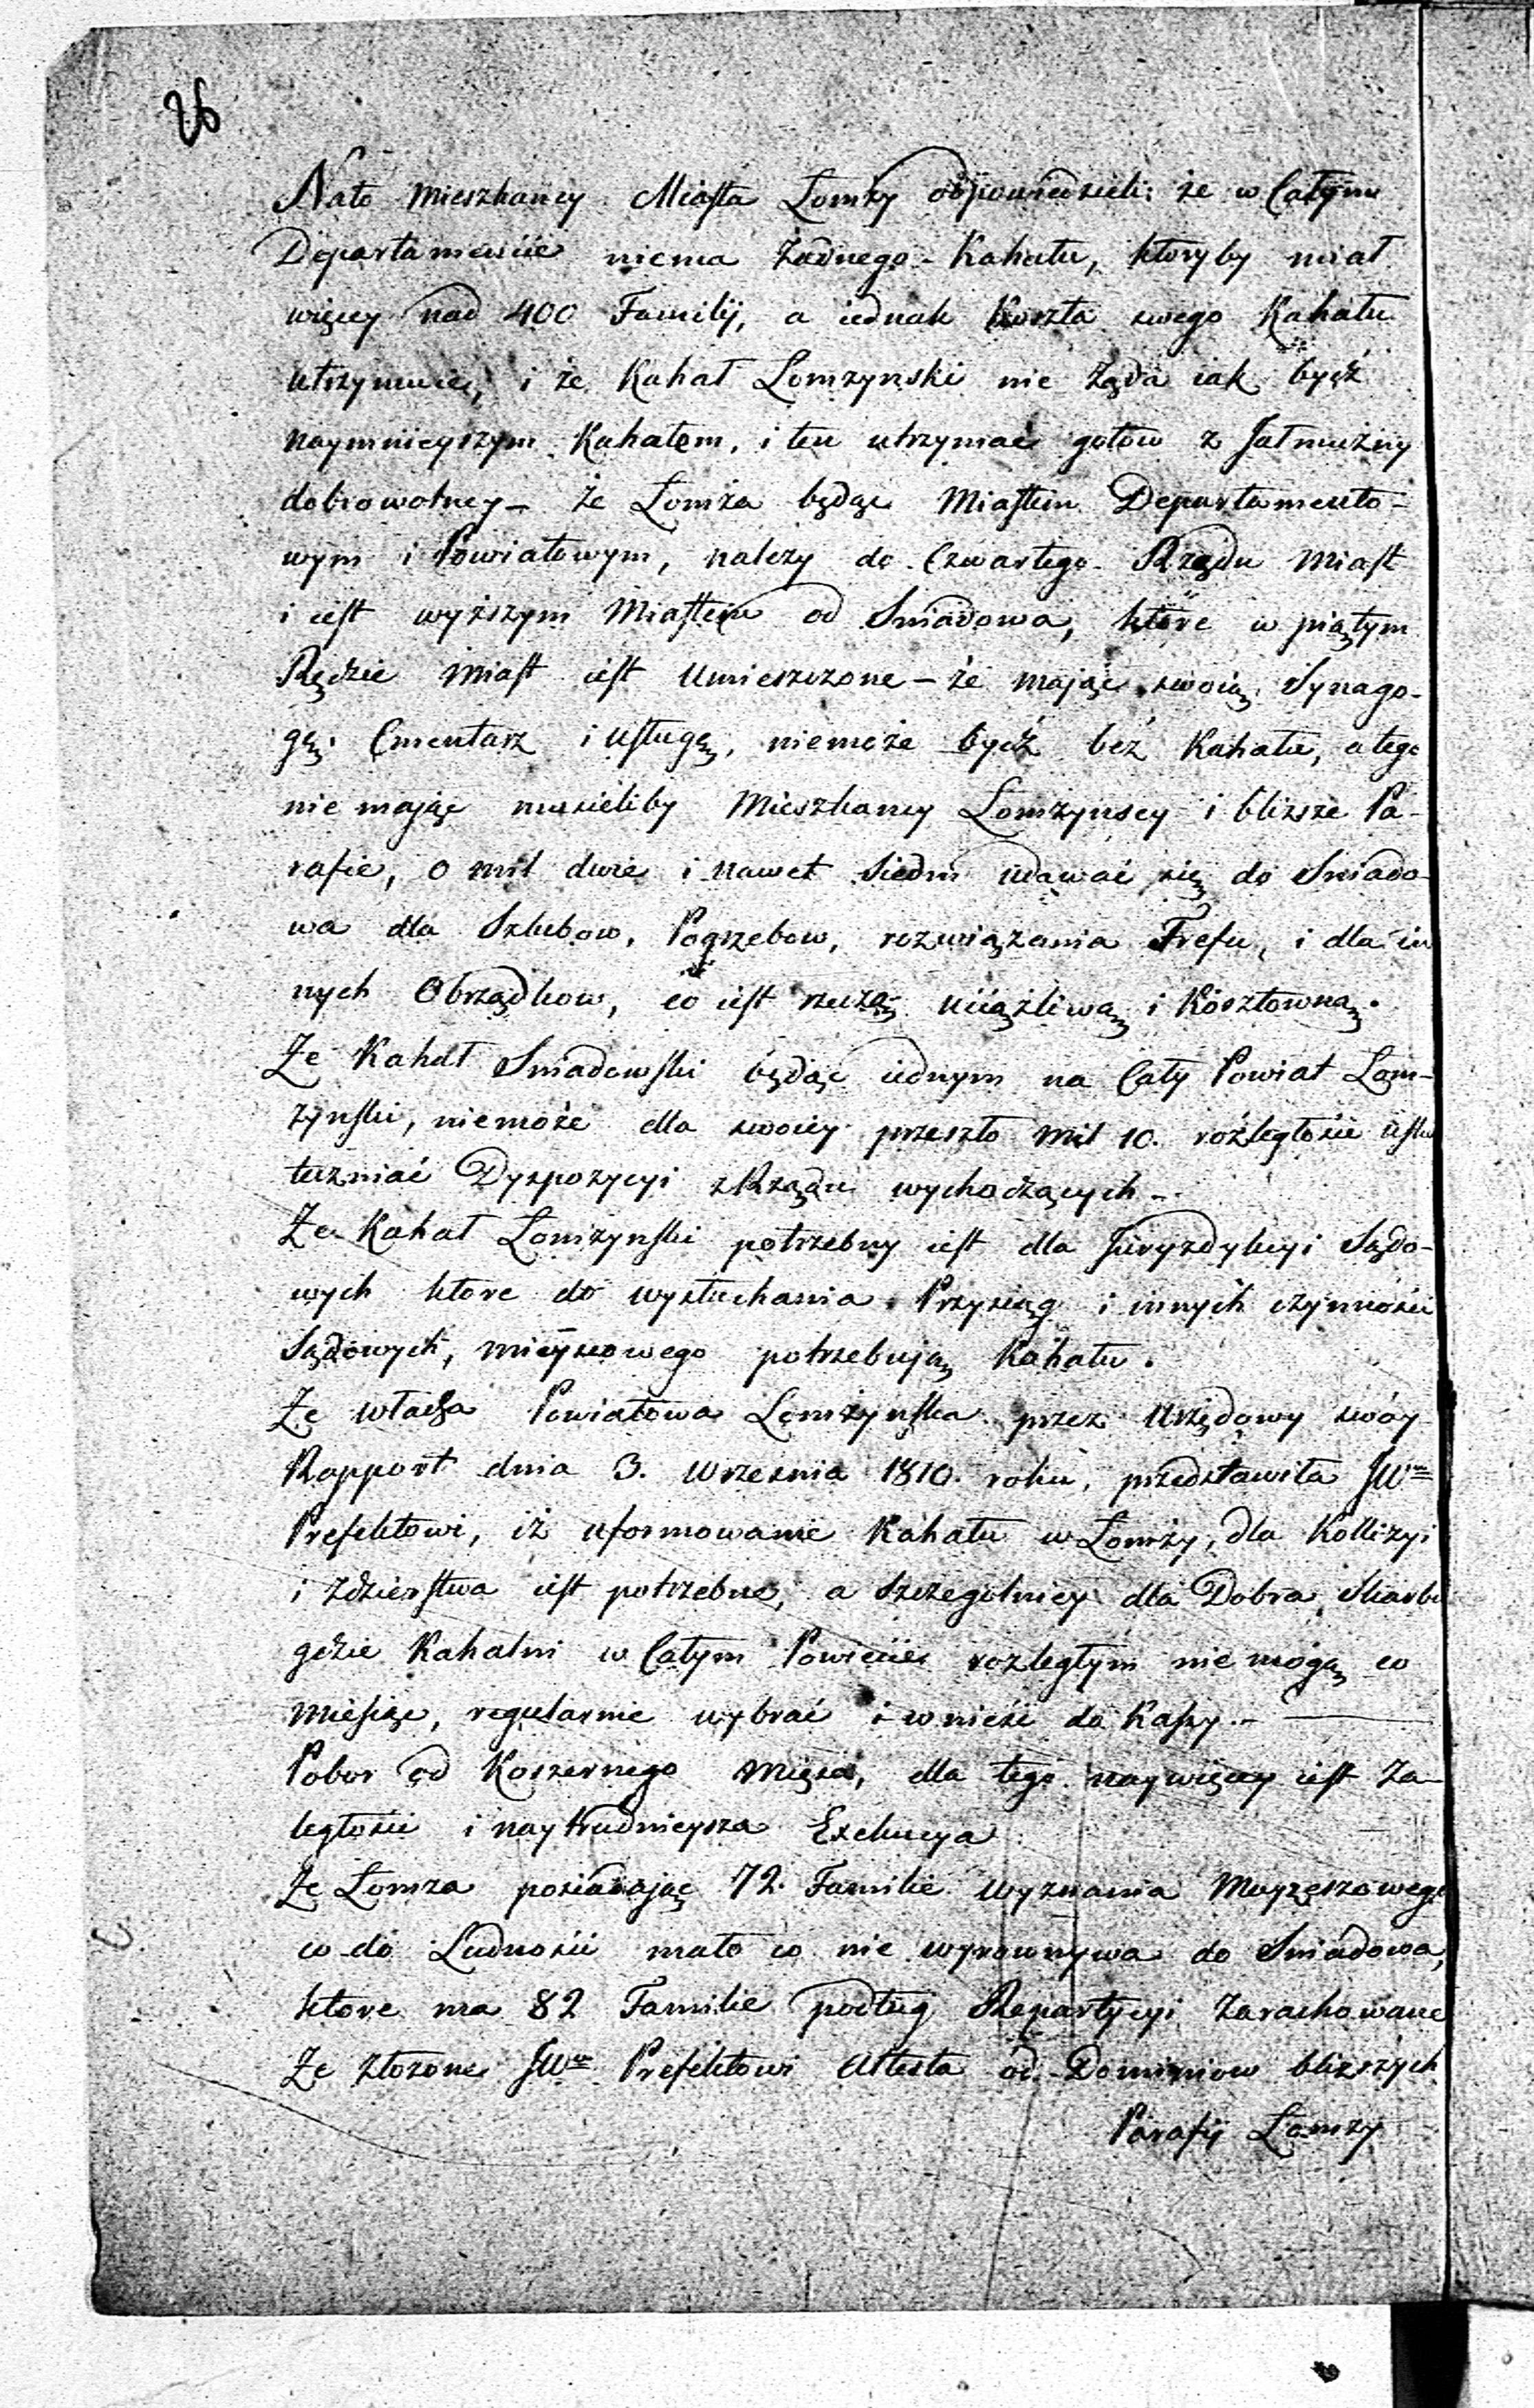 26
Nato Mieszkancy Miasta Łomży odpowiedzieli: że w Całym
Departamencie niema żadnego Kahału, ktoryby miał
więcey nad 400 Familij, a iednak koszta swego Kahału
utrzymuie, i że Kahał Łomzynski nie żąda iak bydź
naymnieyszym Kahałem, i ten utrzymać gotow z Jałmużny
dobrowolney – że Łomża będąc Miastem Departamento-
wym i Powiatowym, należy do Czwartego Rzędu Miast
i iest wyższym Miastem od Sniadowa, które w piątym
Rzędzie Miast iest umieszczone – że mając swoią Synago-
gę, Cmentarz i usługę, niemoże bydź bez Kahału, a tego
nie mając musieliby Mieszkancy Łomżynscy i bliższe Pa-
rafie, o mil dwie i nawet siedm udawać się do Sniado-
wa dla Szlubow, Pogrzebow, rozwiązania Trefu, i dla in
nych Obrządkow, co iest rzeczą uciążliwą i Kosztowną.
Że Kahał Sniadowski będąc iednym na Cały Powiat Łom-
żynski, niemoże dla swoiey przeszło mil 10. rozległości usku
teczniać Dyspozycyi z Rządu wychodzących –
Że Kahał Łomżynski potrzebny iest dla Juryzdykcyi Sądo-
wych ktore do wysłuchania Przysiąg i innych czynności
Sądowych, mieyscowego potrzebują Kahału.
Że władza Powiatowa Łomżynska przez Urzędowy swóy
Rapport dnia 3. Września 1810. roku, przedstawiła JWmu
Prefektowi, iż uformowanie Kahału w Łomży, dla Kollizyi
i zdzierstwa iest potrzebne, a szczegolniey dla Dobra Skarbu
gdzie Kahalni w Całym Powiecie rozległym nie mogą co
miesiąc, regularnie wybrać i wnieść do Kassy. –
Pobor od Koszernego Mięsa, dla tego naywięcey iest za-
ległości i naytrudnieysza Exekucya
Że Łomza posiadając 72. Familie wyznania Moyzeszowego
co do Ludności mało co nie wyrownywa do Sniadowa,
ktore ma 82 Familie podług Repartycyi zarachowane
Że złożone JWmu Prefektowi Attesta od Dominiow bliższych
Parafij Łomzy